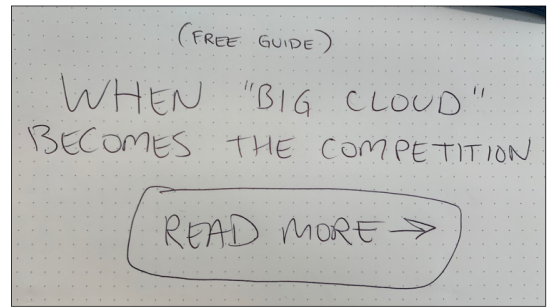 (FREE GUIDE)
WHEN "BIG CLOUD"
BECOMES THE COMPETITION
READ MORE →